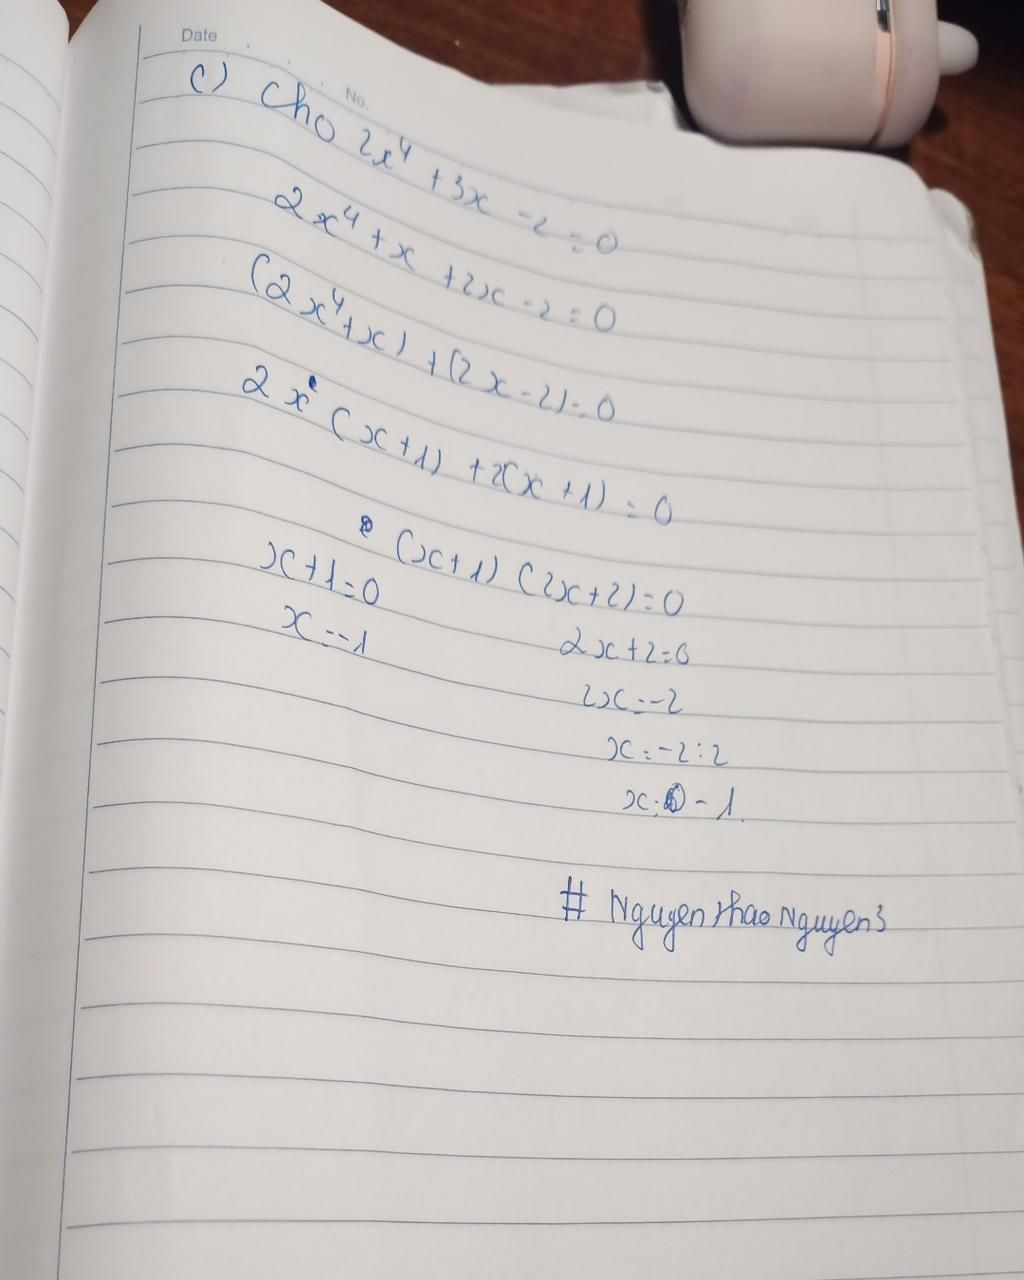 Date
No.
c) Cho 2x⁴ + 3x - 2 = 0
2x⁴ + x + 2x - 2 = 0
(2x⁴ + x) + (2x - 2) = 0
2x (x + 1) + 2(x + 1) = 0
(x + 1) (2x + 2) = 0
x + 1 = 0
2x + 2 = 0
x = -1
2x = -2
x = -2 : 2
x = -1
# Nguyen thao Nguyen3